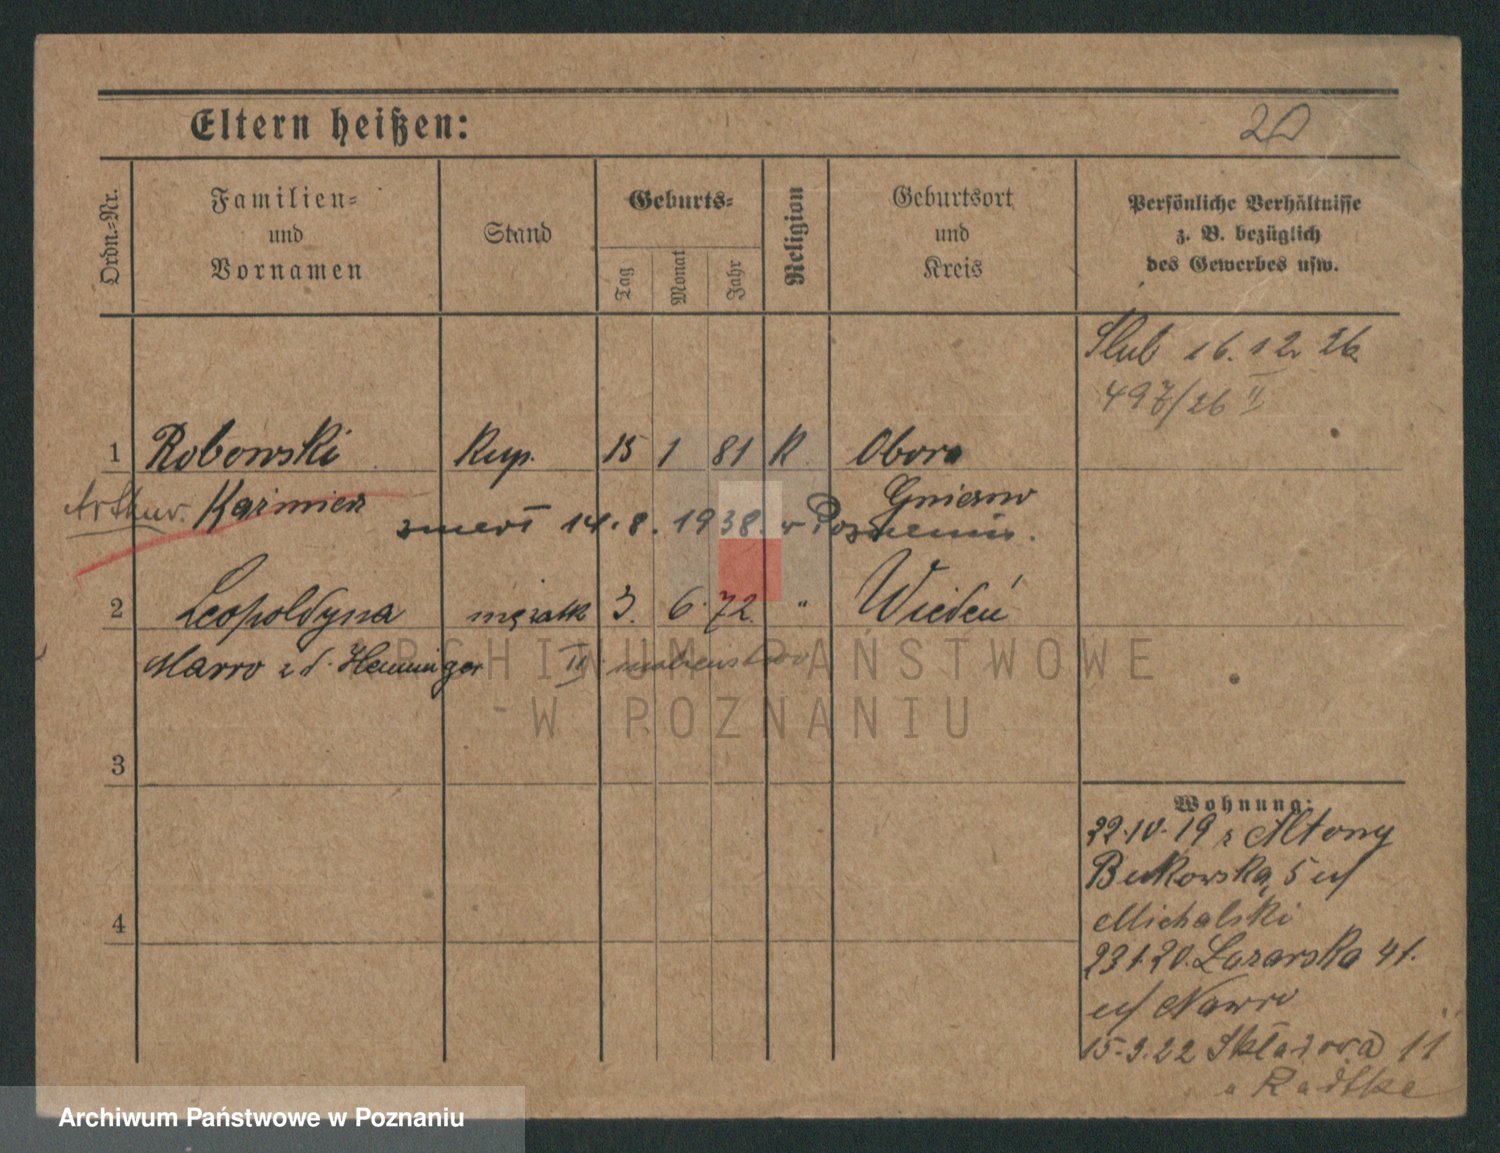 Eltern heißen:
20
Ordn.-Nr.
Familien-
und
Vornamen
Stand
Geburts-
Tag
Monat
Jahr
Religion
Geburtsort
und
Kreis
Persönliche Verhältnisse
z. B. bezüglich
des Gewerbes usw.
Ślub 16. 12 26
497/26 II
1 Robowski Kup. 15 1 81 K. Obora
Arthur. Kaźmierz Gniezno
zmarł 14. 8. 1938. w Poznaniu.
2 Leopoldyna mężatk 3. 6. 72. " Wiedeń
Marro z d. Hemminger II małżeństwo
3
4
Wohnung:
22.IV.19 z Altony
Bukowska, 5 u/
Michalski
23.1.20. Łazarska 41.
u/ Nawro
15.9.22 Składowa 11
u Radtke
ARCHIWUM PAŃSTWOWE
W POZNANIU
Archiwum Państwowe w Poznaniu